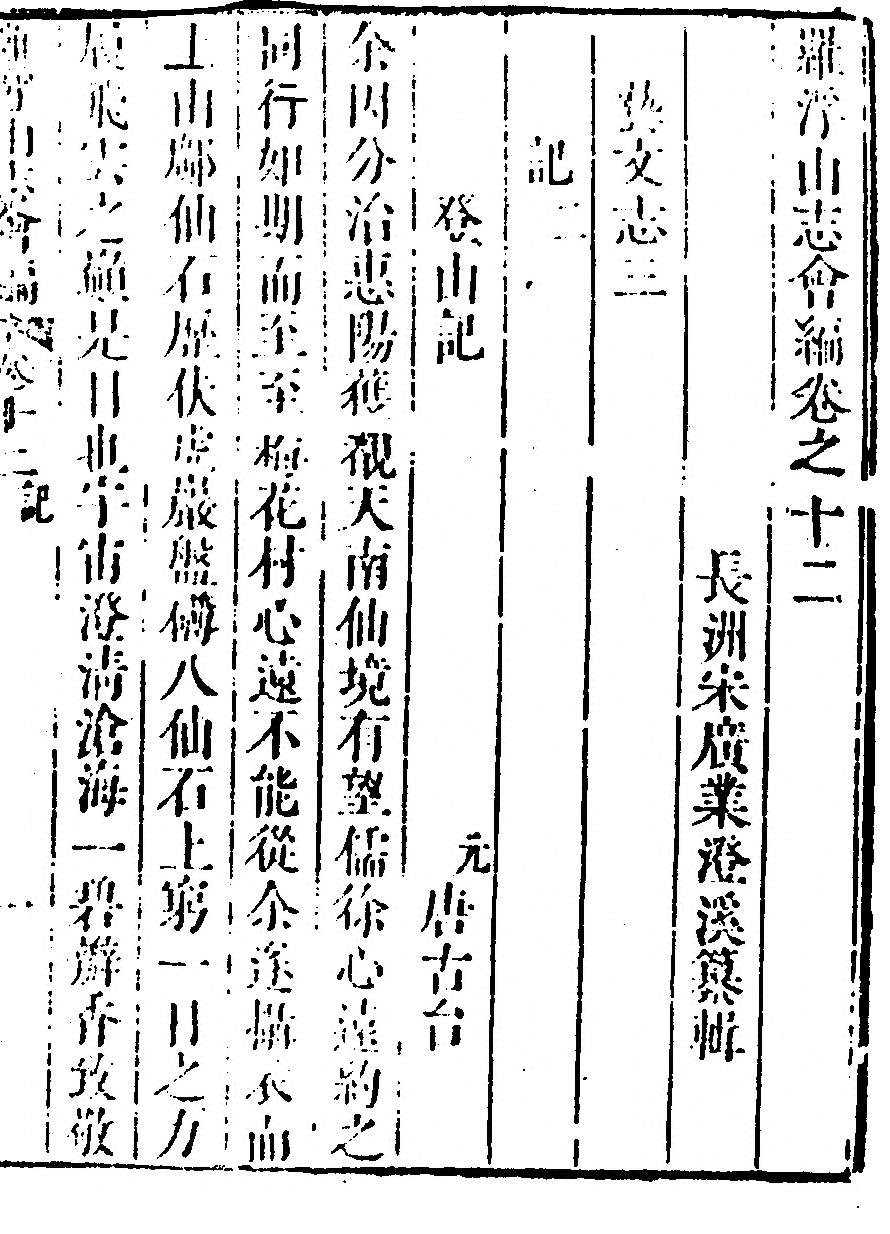 羅浮山志會編卷之十二
長洲宋廣業澄溪纂輯
藝文志三
記二
登山記
元唐古台
余因分治惠陽獲覩天南仙境有望儒徐心遠約之
同行如期而至至梅花村心遠不能從余遂攝衣而
上山鄰仙石歷伏虎巖盤礡八仙石上窮一日之力
飛雲之巔是日也宇宙澄清滄海一碧瓣香致敬
羅浮山志會編 卷十二 記 一